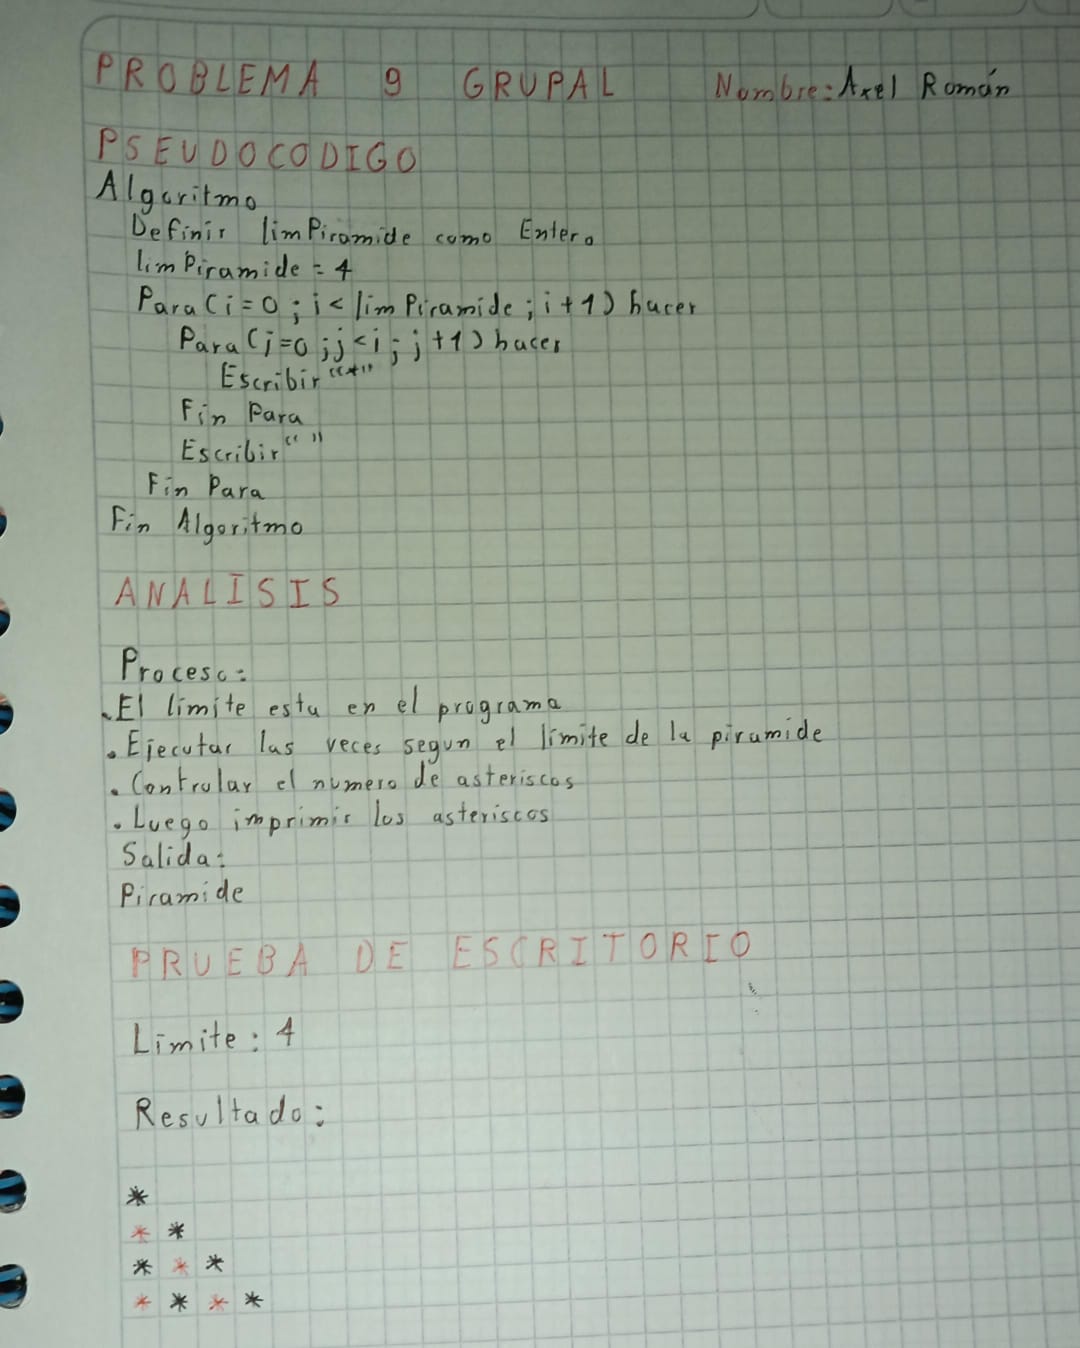 PROBLEMA 9 GRUPAL Nombre: Axel Román
PSEUDOCODIGO
Algoritmo
Definir limPiramide como Entero
limPiramide = 4
Para (i=0; i< limPiramide; i+1) hacer
Para (j=0; j<i; j+1) hacer
Escribir "*"
Fin Para
Escribir " "
Fin Para
Fin Algoritmo
ANALISIS
Proceso:
. El limite esta en el programa
. Ejecutar las veces segun el limite de la piramide
. Controlar el numero de asteriscos
. Luego imprimir los asteriscos
Salida:
Piramide
PRUEBA DE ESCRITORIO
Limite: 4
Resultado:
*
* *
* * *
* * * *